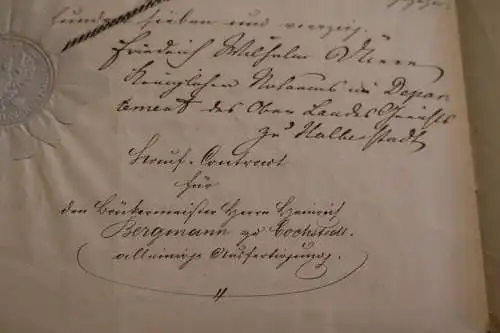 hundert sieben und vierzig.
Friedrich Wilhelm
Königlicher Notarius im Depar-
tement des Ober Landes Gerichts
zu Halberstadt
Kauf-Contract
für
den Böttchermeister Herrn Heinrich
Bergmann zu Cochstedt.
alleinige Ausfertigung.